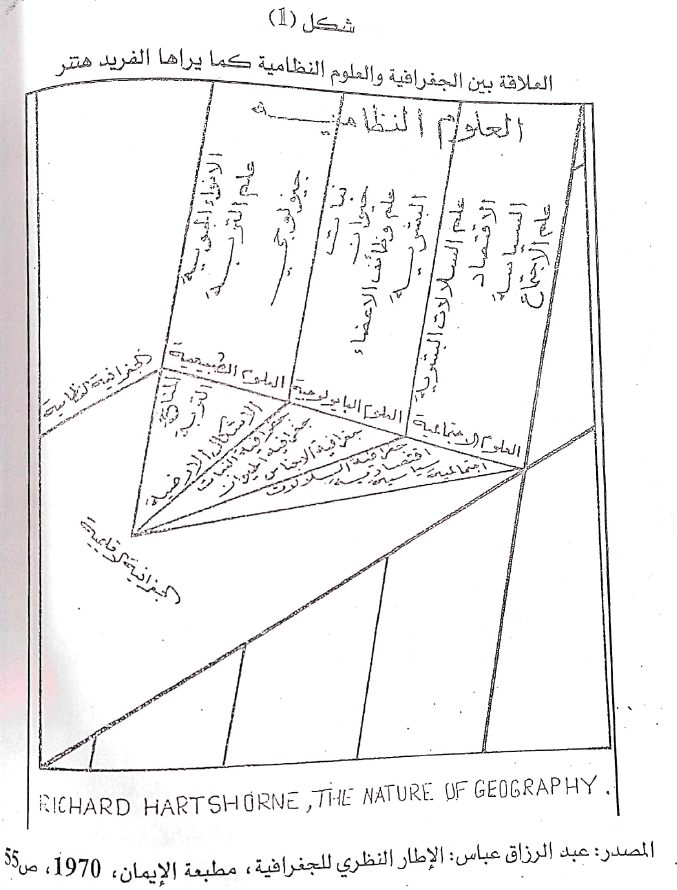 شكل (1)
العلاقة بين الجغرافية والعلوم النظامية كما يراها الفريد هتنر
العلوم النظاميـــه
علم الاجتماع
السياسة
الاقتصاد
علم السلالات البشرية
البشرية
علم وظائف الاعضاء
حيوان
نبات
جيولوجي
علم التربــة
الانواء الجوية
العلوم الاجتماعية
العلوم البايولوجية
العلوم الطبيعية
الجغرافية النظامية
المناخ
التربة
الاشكال الارضية
جغرافية النبات
جغرافية الحيوان
جغرافية الاجناس
جغرافية السلالات
اقتصادية
سياسية
اجتماعية
الجغرافية الاقليمية
RICHARD HARTSHORNE , THE NATURE OF GEOGRAPHY .
المصدر: عبد الرزاق عباس: الإطار النظري للجغرافية، مطبعة الإيمان، 1970، ص55